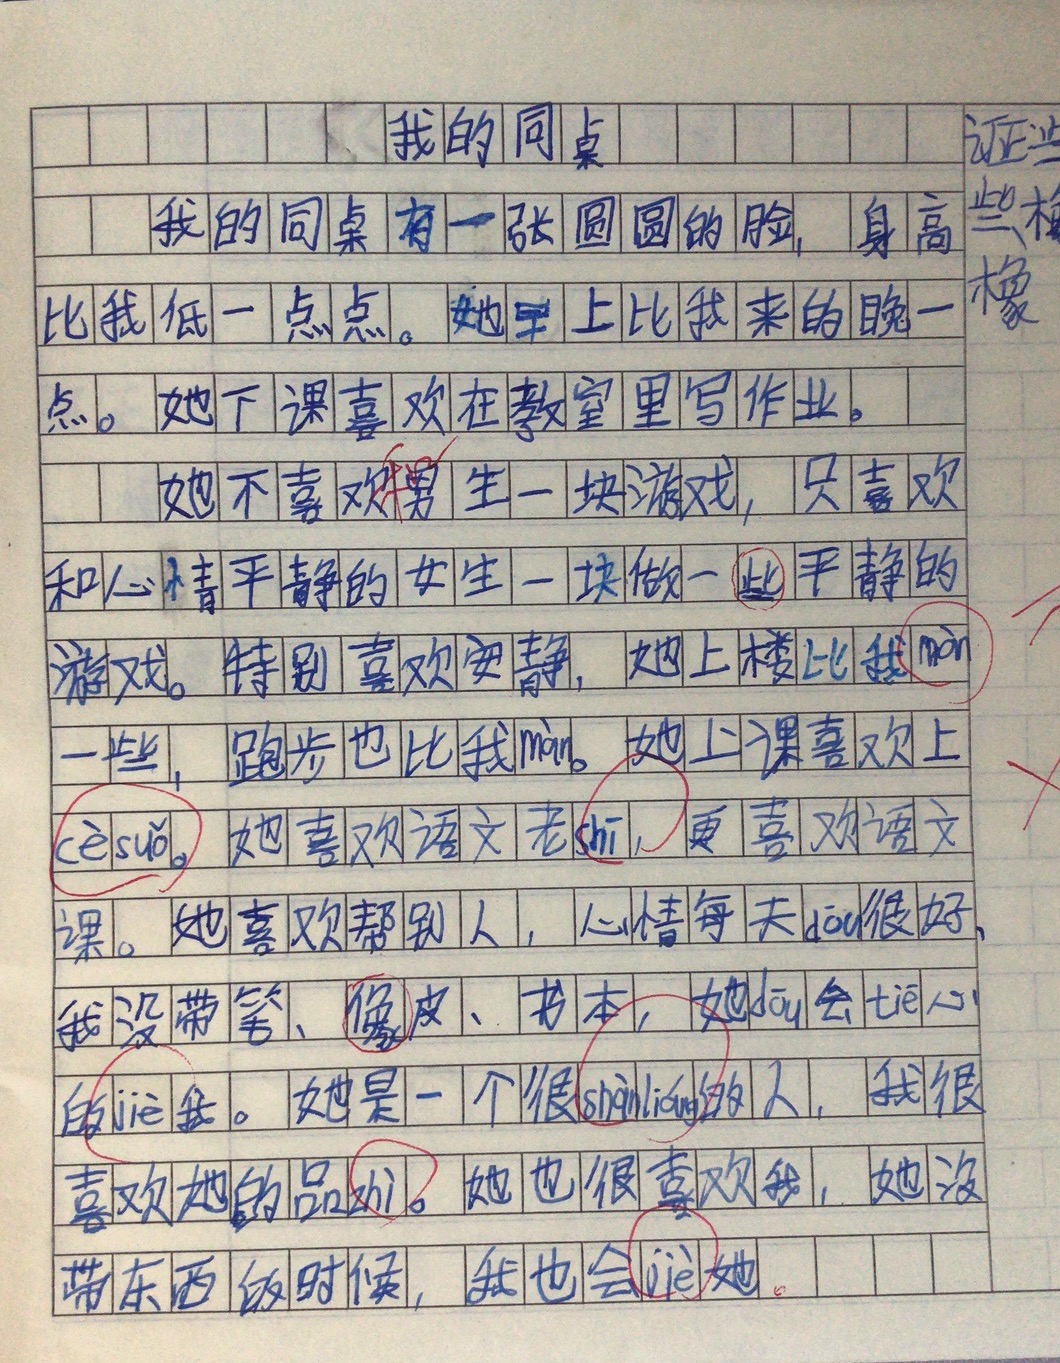 我的同桌
我的同桌有一张圆圆的脸，身高
比我低一点点。她早上比我来的晚一
点。她下课喜欢在教室里写作业。
她不喜欢和男生一块游戏，只喜欢
和心情平静的女生一块做一些平静的
游戏。特别喜欢安静，她上楼比我màn
一些，跑步也比我màn。她上课喜欢上
cèsuǒ。她喜欢语文老shī，更喜欢语文
课。她喜欢帮别人，心情每天dōu很好、
我没带笔、像皮、书本，她dōu会tiē心
的jiè我。她是一个很shànliáng的人，我很
喜欢她的品zhì。她也很喜欢我，她没
带东西的时候，我也会jiè她。
些
橡